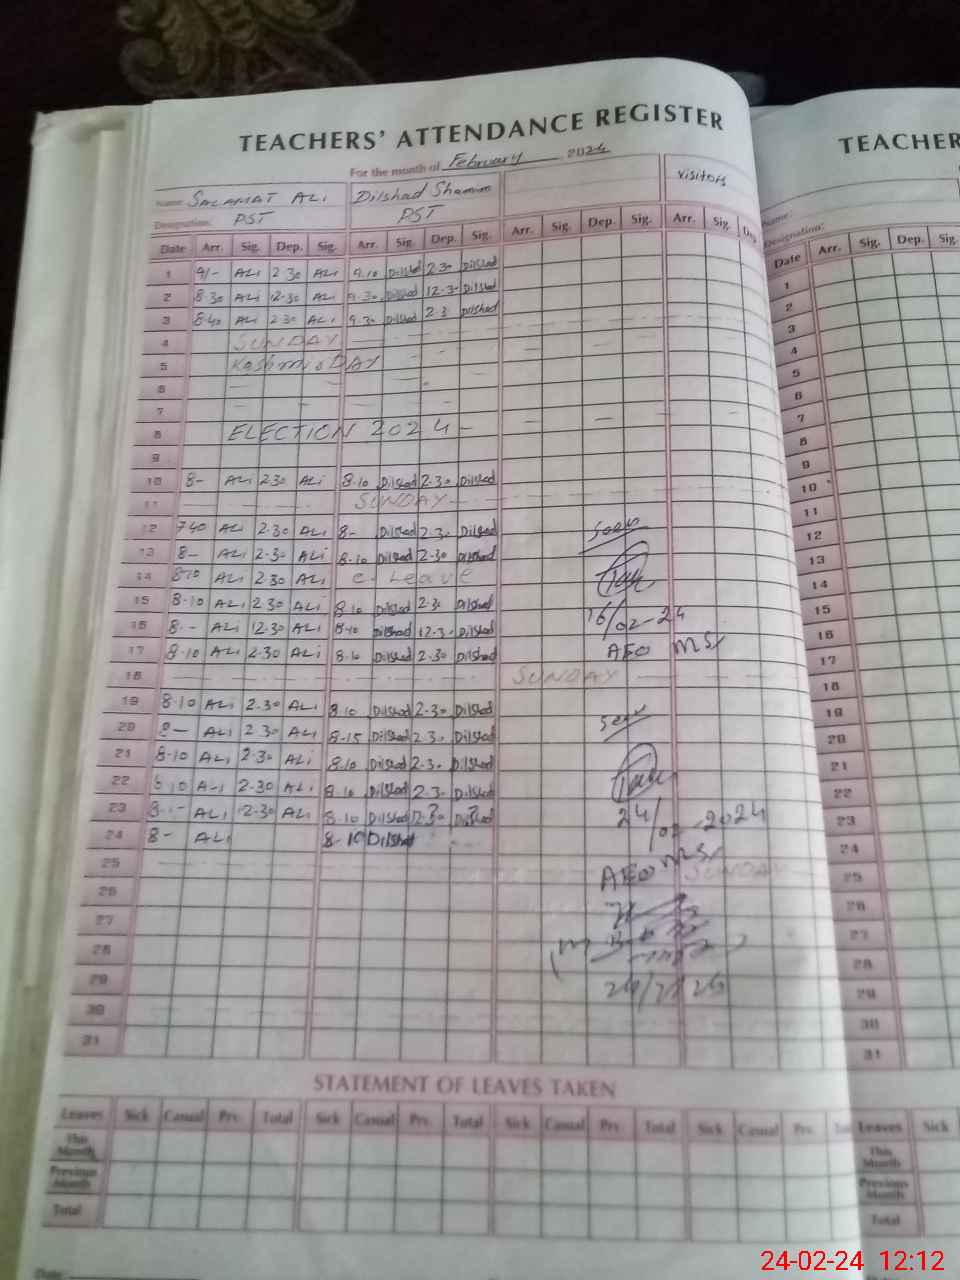 TEACHERS' ATTENDANCE REGISTER
For the month of February 2024
Name: SALAMAT ALI Dilshad Shamim visitors
Designation: PST PST
Date Arr. Sig. Dep. Sig. Arr. Sig. Dep. Sig. Arr. Sig. Dep. Sig. Arr. Sig. Dep
1 9/- ALi 2 30 ALi 9.10 Dilshad 2.30 Dilshad
2 8.30 ALi 12-30 ALi 9.30 Dilshad 12.30 Dilshad
3 8.40 ALi 2 30 ALi 9.30 Dilshad 2.3 Dilshad
4 SUNDAY
5 Kashmir DAY
6
7
8 ELECTION 2024
9
10 8- ALi 2.30 ALi 8.10 Dilshad 2.30 Dilshad
11 SUNDAY
12 740 ALi 2.30 ALi 8- Dilshad 2.30 Dilshad Seen
13 8- ALi 2-30 ALi 8.10 Dilshad 2-30 Dilshad
14 810 ALi 2.30 ALi C-Leave
15 8.10 ALi 2 30 ALi 8.10 Dilshad 2.30 Dilshad 16/02-24
16 8.- ALi 12.30 ALi 8.10 Dilshad 12.30 Dilshad
17 8-10 ALi 2.30 ALi 8.10 Dilshad 2.30 Dilshad AEO MS/
18 SUNDAY
19 8.10 ALi 2.30 ALi 8.10 Dilshad 2.30 Dilshad
20 8- ALi 2 30 ALi 8.15 Dilshad 2.30 Dilshad Seen
21 8-10 ALi 2.30 ALi 8.10 Dilshad 2.30 Dilshad
22 8.10 ALi 2.30 ALi 8.10 Dilshad 2.30 Dilshad
23 8.- ALi 12.30 ALi 8.10 Dilshad 12.30 Dilshad 24/02-2024
24 8- ALi 8-10 Dilshad
25 AEO MS/ SUNDAY
26
27
28
29
30
31
STATEMENT OF LEAVES TAKEN
Leaves Sick Casual Prv. Total Sick Casual Prv. Total Sick Casual Prv. Total Sick Casual Prv.
This Month
Previous Month
Total
Date:
TEACHER
Name:
Designation:
Date Arr. Sig. Dep. Sig.
1
2
3
4
5
6
7
8
9
10
11
12
13
14
15
16
17
18
19
20
21
22
23
24
25
26
27
28
29
30
31
Leaves Sick
This Month
Previous Month
Total
24-02-24 12:12